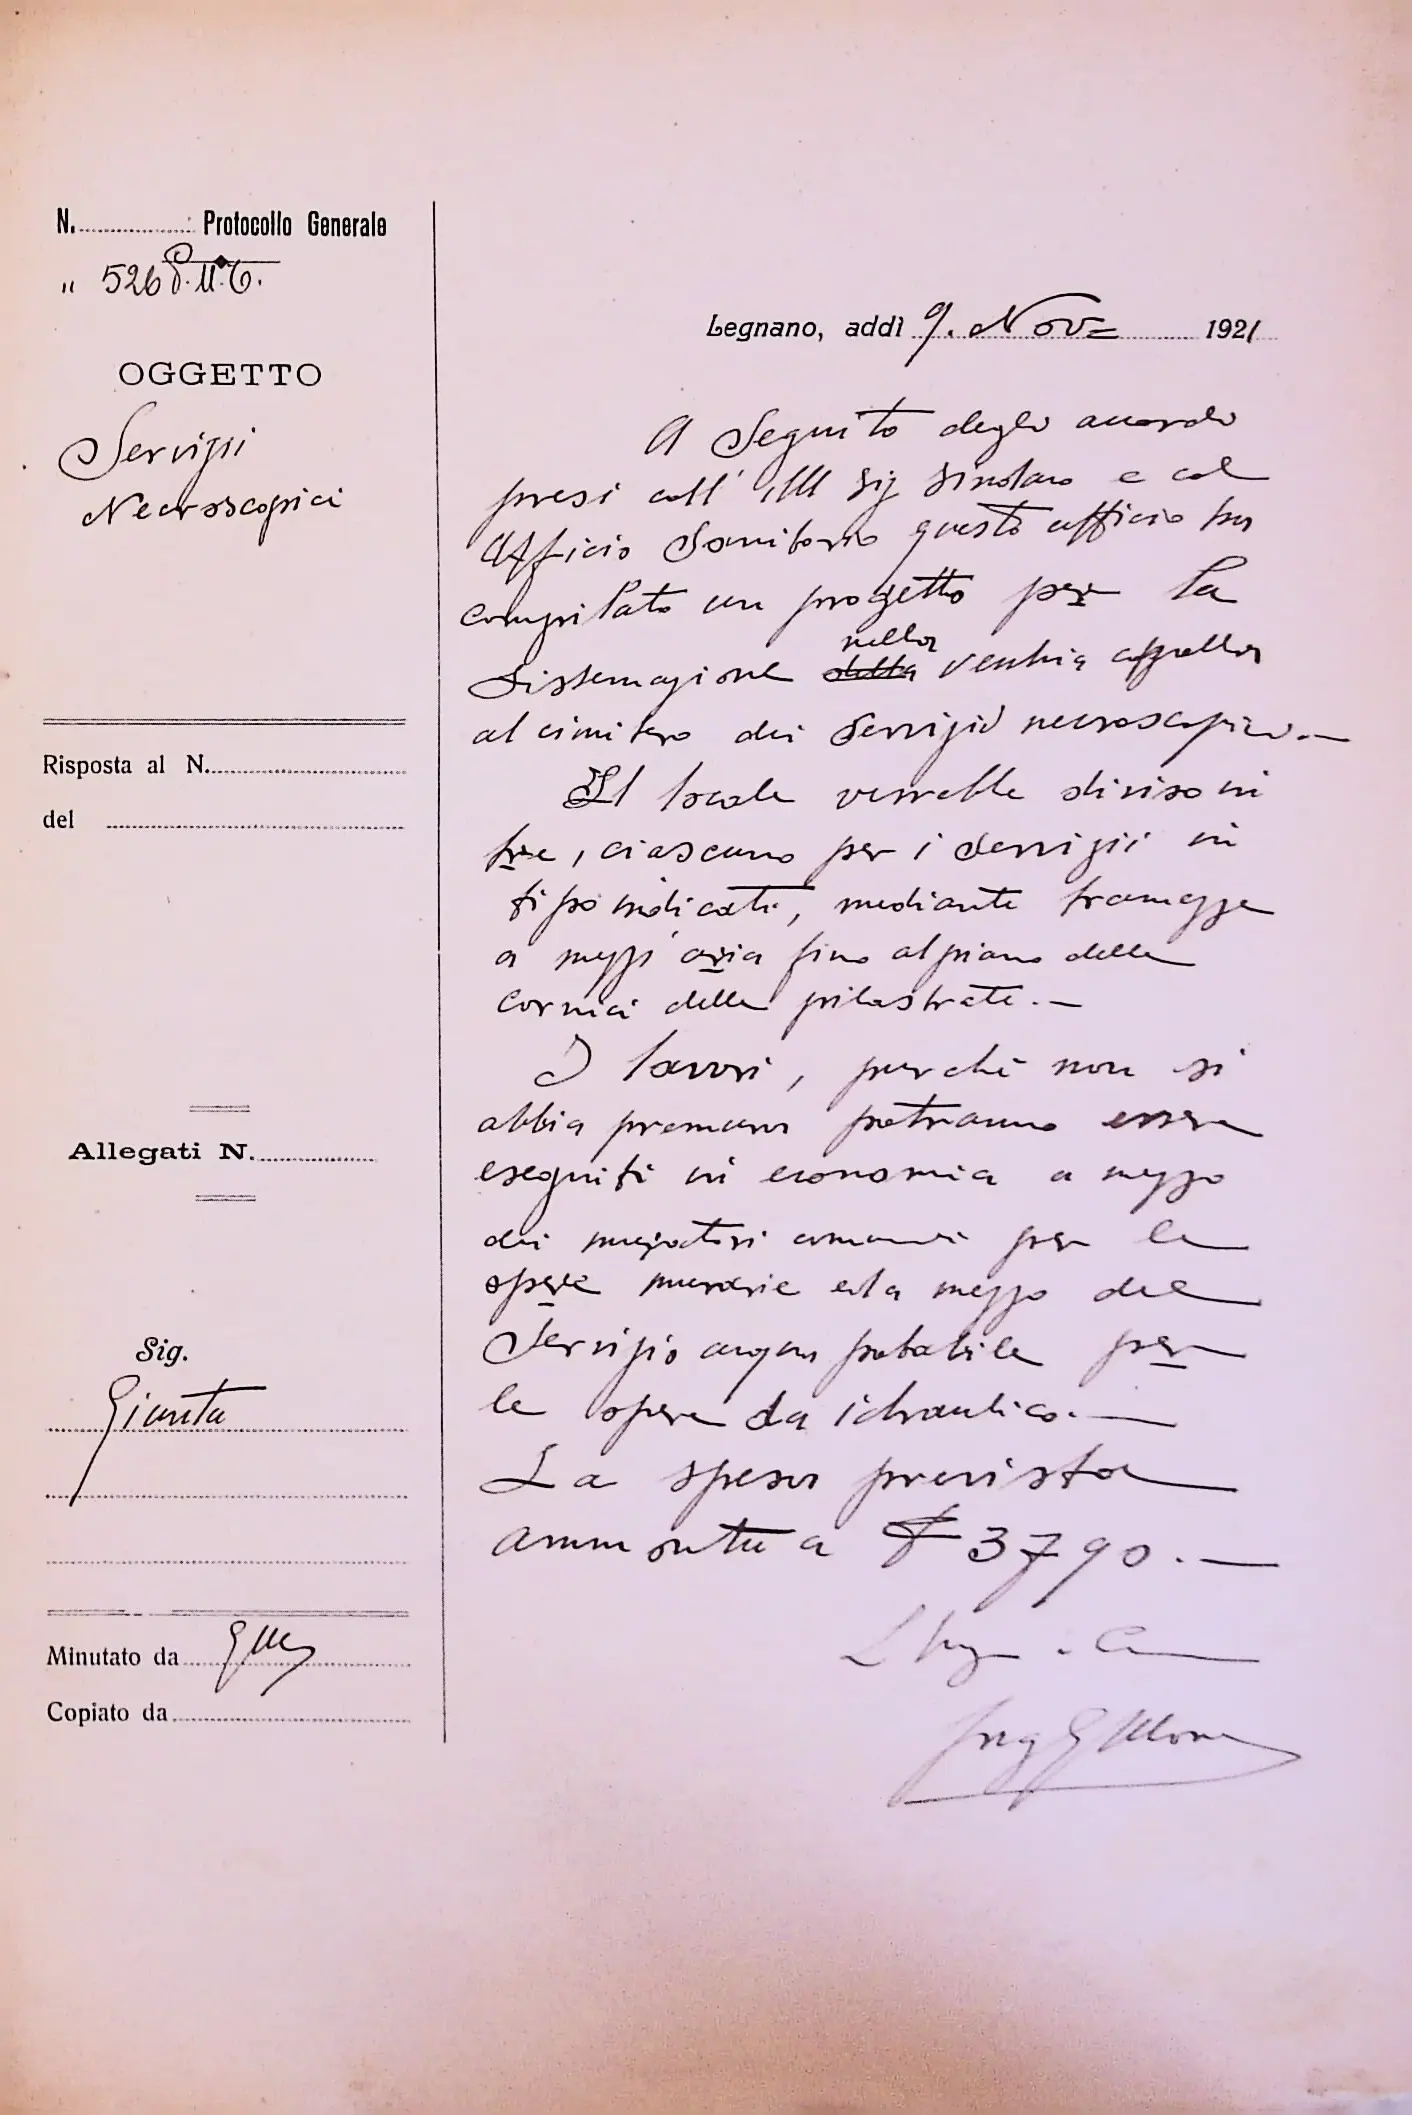 N. Protocollo Generale
" 526 P.U.T.
OGGETTO
Servizi
Necroscopici
Risposta al N.
del
Allegati N.
Sig.
Giunta
Minutato da
Copiato da
Legnano, addì 9. Nov= 1921
A Seguito degli accordi
presi coll' Ill Sig Sindaco e col
Ufficio Sanitario questo ufficio ha
compilato un progetto per la
sistemazione della nella vecchia cappella
al cimitero dei servizii necroscopici.—
Il locale verrebbe diviso in
tre, ciascuno per i servizii in
tipo indicati, mediante tramezze
a mezz'aria fino al piano delle
cornici delle pilastrate.—
I lavori, perchè non si
abbia premura potranno essere
eseguiti in economia a mezzo
dei per le
opere murarie ed a mezzo del
Servizio acqua potabile per
le opere da idraulico.—
La spesa prevista
ammonta a £ 3790.—
Ing